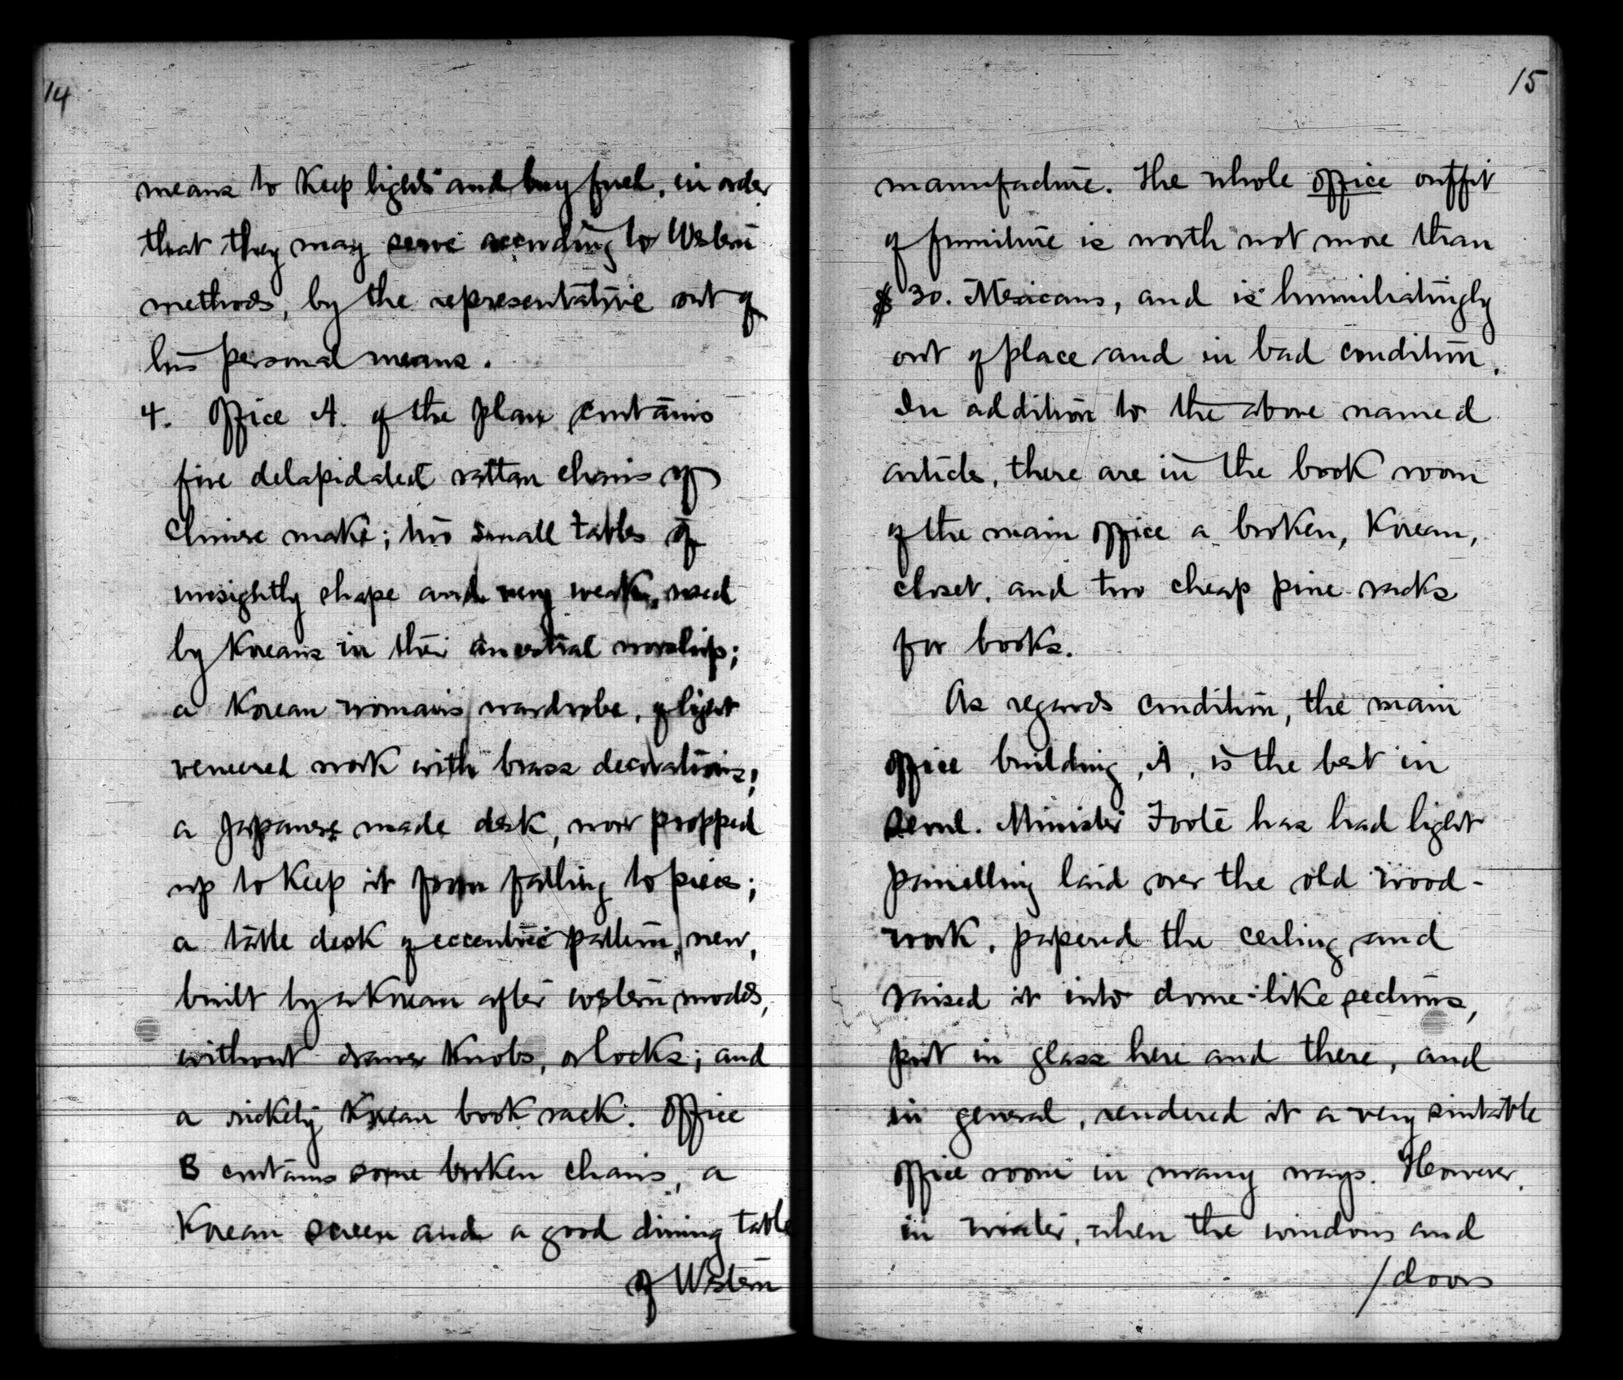 14
means to keep lights and buy fuel, in order
that they may serve according to Western
methods, by the representative out of
his personal means.
4. Office A. of the plan contains
five delapidated rattan chairs of
Chinese make; two small tables of
unsightly shape and very weak, used
by Koreans in their ancestral worship;
a Korean woman's wardrobe, of light
veneered work with brass decorations;
a Japanese made desk, now propped
up to keep it from falling to pieces;
a table desk of eccentric pattern, new,
built by a Korean after western models,
without drawer knobs, or locks; and
a rickety Korean book rack. Office
B contains some broken chairs, a
Korean screen and a good dining table
of Western
15
manufacture. The whole office outfit
of furniture is worth not more than
$30. Mexicans, and is humiliatingly
out of place and in bad condition.
In addition to the above named
articles, there are in the book room
of the main office a broken, Korean,
closet, and two cheap pine racks
for books.
As regards condition, the main
office building, A, is the best in
Seoul. Minister Foote has had light
panelling laid over the old wood-
work, papered the ceiling and
raised it into dome-like sections,
put in glass here and there, and
in general, rendered it a very suitable
office room in many ways. However,
in winter, when the windows and
/doors